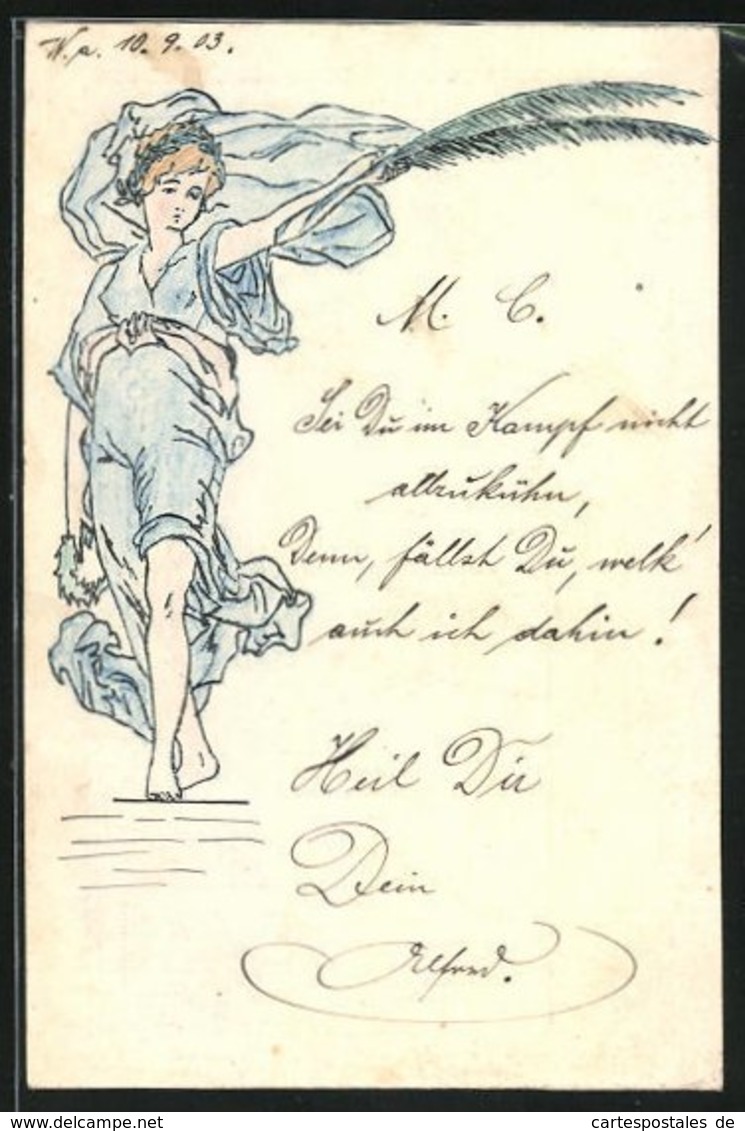 W. a. 10. 9. 03.
M. C.
Sei Du im Kampf nicht
allzukühn,
Denn, fällst Du, welk'
auch ich dahin!
Heil Dir
Dein
Alfred.
cartespostales de